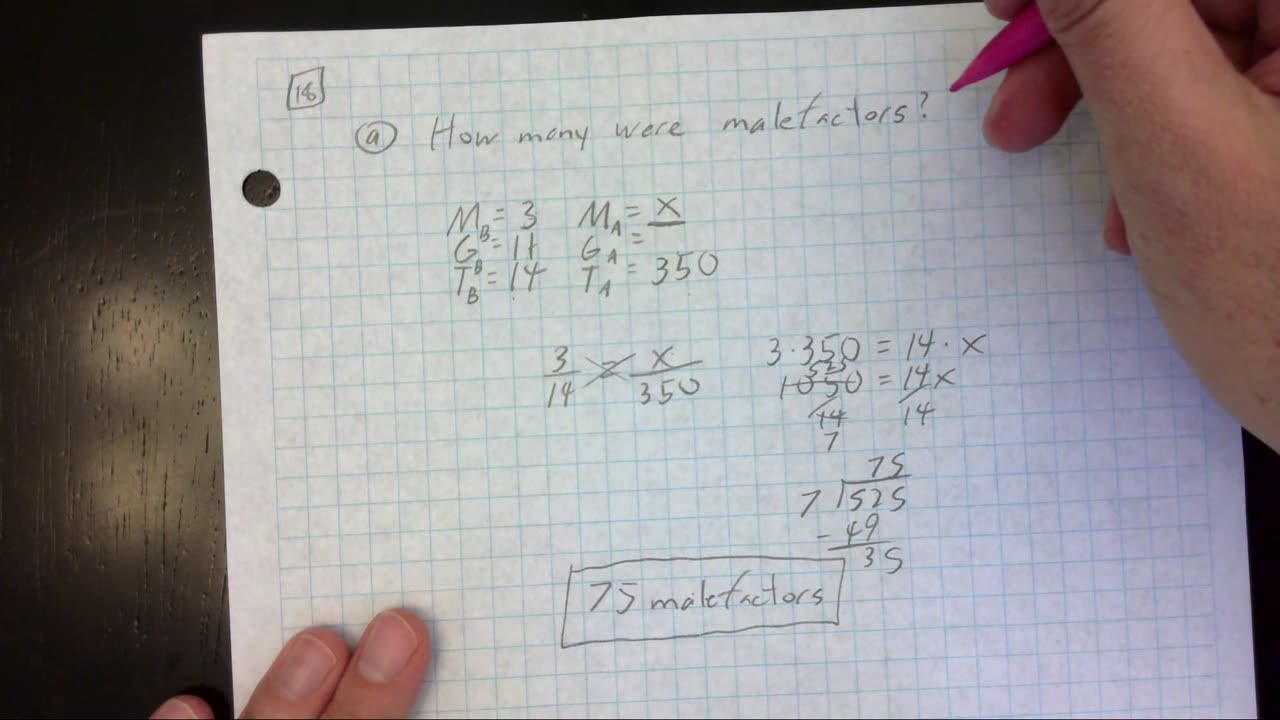 18
a How many were malefactors?
M_B = 3 M_A = x
G_B = 11 G_A =
T_B = 14 T_A = 350
3/14 = x/350
3 · 350 = 14 · x
525
1050 = 14x
14 14
7
75
7 525
- 49
35
75 malefactors